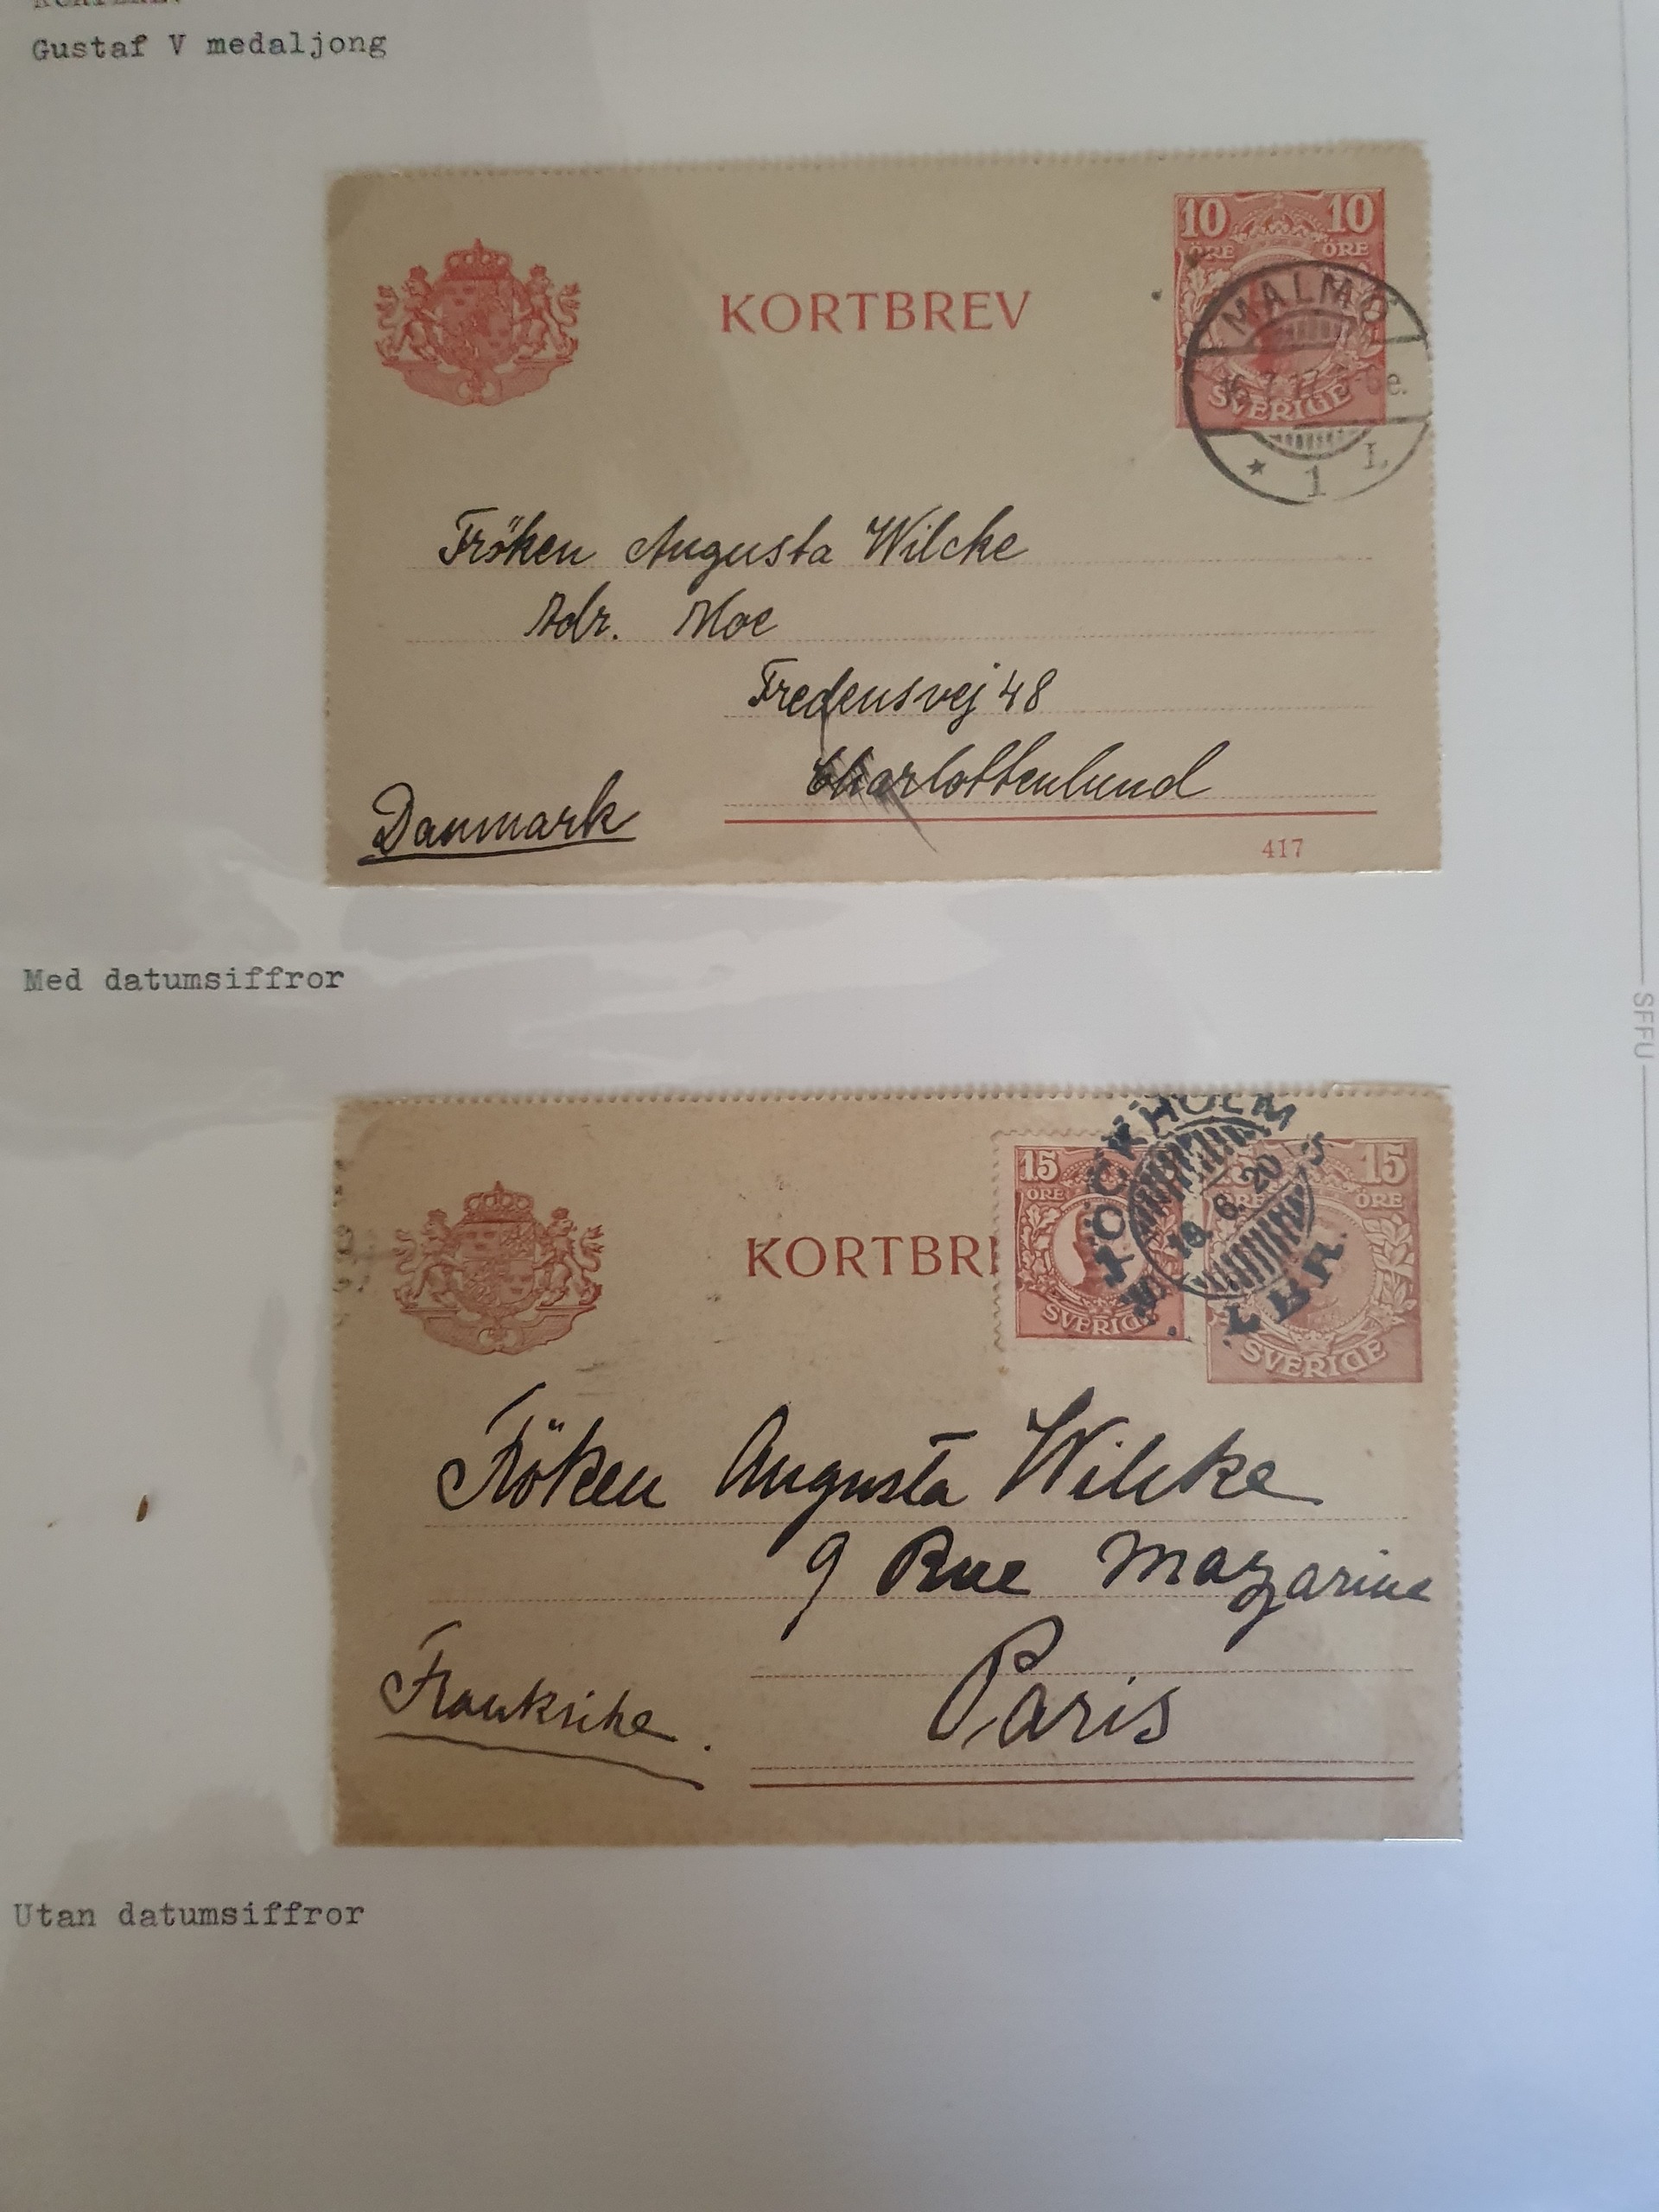 Gustaf V medaljong
10 10
ÖRE ÖRE
SVERIGE
KORTBREV
MALMÖ
1 L
Fröken Augusta Wilcke
Adr. Moe
Fredensvej 48
Charlottenlund
Danmark
417
Med datumsiffror
SFFU
15 15
ÖRE ÖRE
SVERIGE SVERIGE
KORTBR
STOCKHOLM
6.20
LBR
Fröken Augusta Wilcke
9 Rue Mazarine
Paris
Frankrike.
Utan datumsiffror